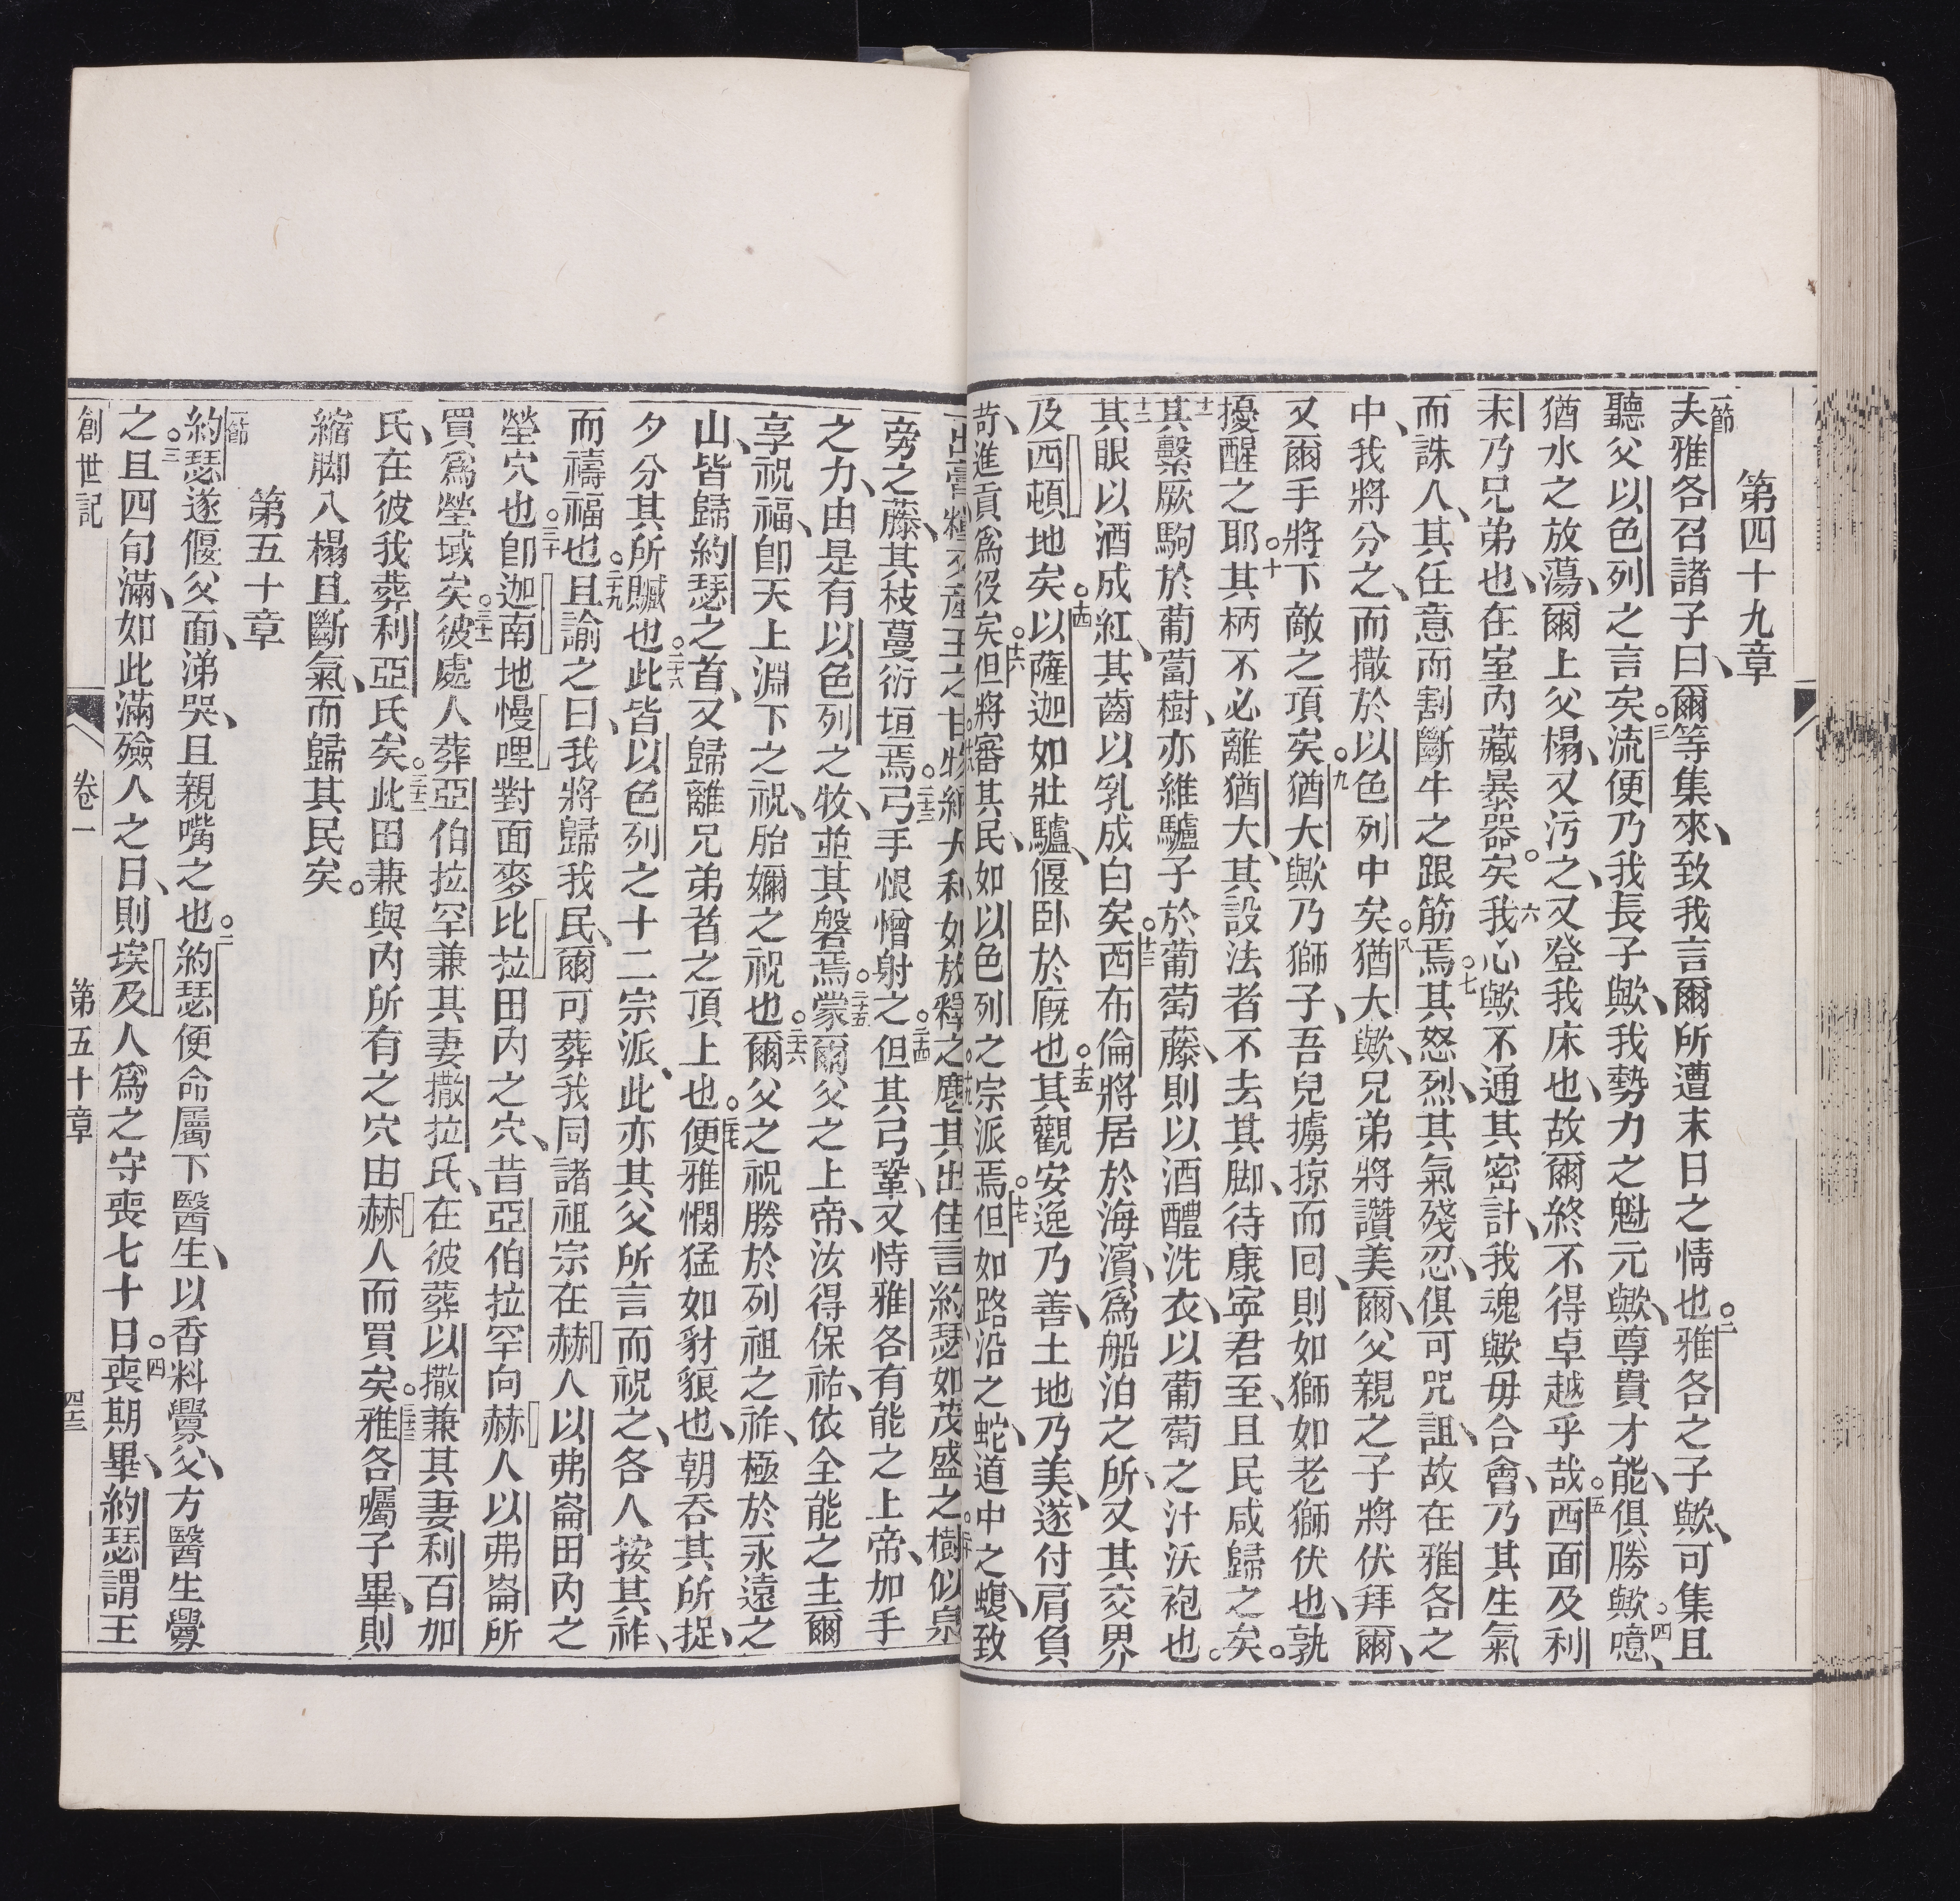 第四十九章
一節夫雅各召諸子曰、爾等集來、致我言爾所遭末日之情也○二雅各之子歟、可集且
聽父以色列之言矣○三流便乃我長子歟、我勢力之魁元歟、尊貴才能、俱勝歟○四噫、
猶水之放蕩、爾上父榻、又污之、又登我床也、故爾終不得卓越乎哉○五西面及利
末乃兄弟也、在室內藏暴器矣○六我心歟不通其密計、我魂歟毋合會、乃其生氣
而誅人、其任意而割斷牛之跟筋焉○七其怒烈、其氣殘忍、俱可咒詛、故在雅各之
中、我將分之、而撒於以色列中矣○八猶大歟、兄弟將讚美爾、父親之子將伏拜爾、
又爾手將下敵之項矣○九猶大歟乃獅子、吾兒擄掠而回、則如獅如老獅伏也、孰
擾醒之耶○十其柄不必離猶大、其設法者不去其脚、待康寧君至、且民咸歸之矣○
十一其繫厥駒於葡萄樹、亦維驢子於葡萄藤、則以酒醴洗衣、以葡萄之汁沃袍也○
十二其眼以酒成紅、其齒以乳成白矣○十三西布倫將居於海濱、為船泊之所、又其交界
及西頓地矣○十四以薩迦如壯驢、偃臥於廐也○十五其觀安逸乃善、土地乃美、遂付肩負
苛、進貢為役矣○十六但將審其民、如以色列之宗派焉○十七但如路沿之蛇、道中之蝮、致
旁之藤、其枝蔓衍垣焉○二十三弓手恨憎射之○二十四但其弓鞏、又恃雅各有能之上帝、加手
之力、由是有以色列之牧、並其磐焉○二十五蒙爾父之上帝、汝得保祐、依全能之主爾
享祝福、卽天上淵下之祝、胎嬭之祝也○二十六爾父之祝勝於列祖之祚、極於永遠之
山、皆歸約瑟之首、又歸離兄弟者之頂上也○二十七便雅憫猛如豺狼也、朝吞其所捉、
夕分其所贓也○二十八此皆以色列之十二宗派、此亦其父所言而祝之、各人按其祚、
而禱福也○二十九且諭之曰、我將歸我民、爾可葬我同諸祖宗在赫人以弗崙田內之
塋穴也○三十卽迦南地慢哩對面麥比拉田內之穴、昔亞伯拉罕向赫人以弗崙所
買為塋域矣○三十一彼處人葬亞伯拉罕兼其妻撒拉氏、在彼葬以撒兼其妻利百加
氏、在彼我葬利亞氏矣○三十二此田兼與內所有之穴由赫人而買矣○三十三雅各囑子畢、則
縮脚入榻且斷氣、而歸其民矣○
第五十章
一節約瑟遂偃父面、涕哭、且親嘴之也○二約瑟便命屬下醫生、以香料釁父、方醫生釁
之○三且四旬滿、如此滿殮人之日、則埃及人為之守喪七十日○四喪期畢、約瑟謂王
創世記 卷一 第五十章 四十三